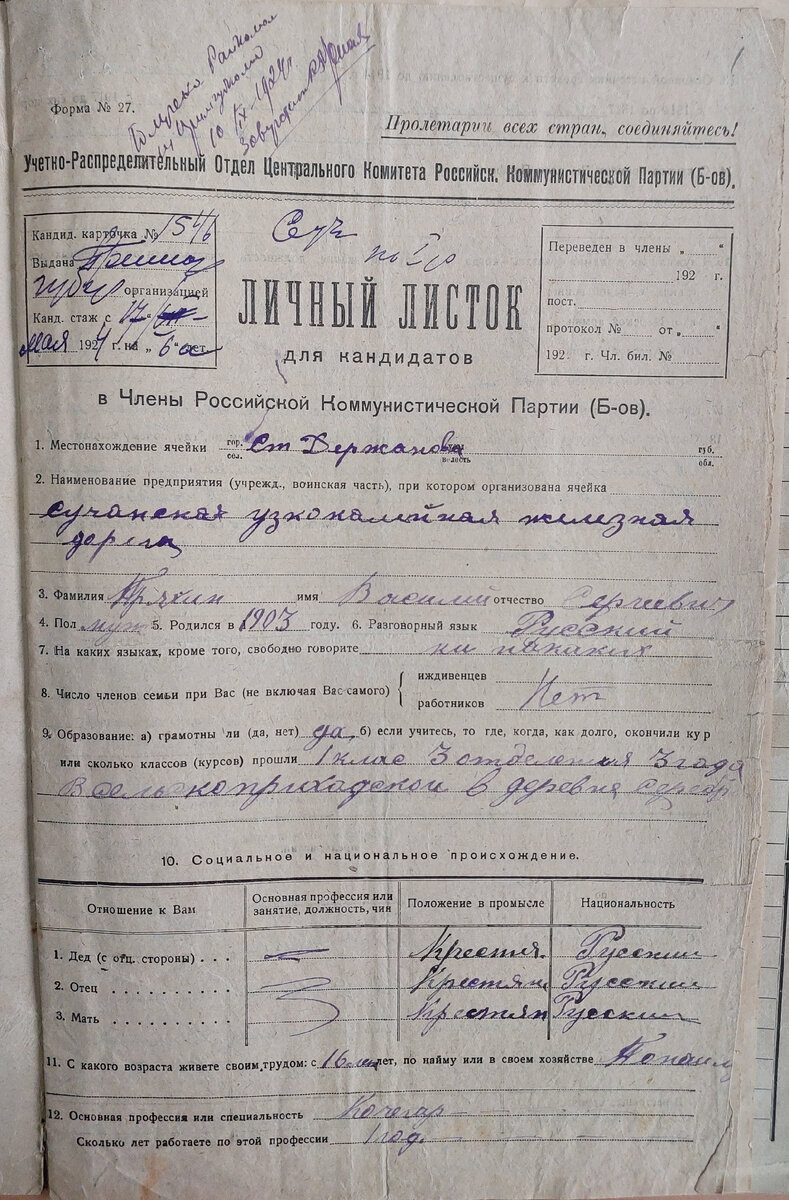 1
10/IX-1924 г.
Форма № 27.
Пролетарии всех стран, соединяйтесь!
Учетно-Распределительный Отдел Центрального Комитета Российск. Коммунистической Партии (Б-ов).
Кандид. карточка № 1546
Выдана
организацией
Канд. стаж с 17
мая 1924 г. на „ 6
ЛИЧНЫЙ ЛИСТОК
для кандидатов
Переведен в члены „ “
192 г.
пост.
протокол № от „ “
192 г. Чл. бил. №
в Члены Российской Коммунистической Партии (Б-ов).
1. Местонахождение ячейки гор. сел. Ст Держанова волость губ. обл.
2. Наименование предприятия (учрежд., воинская часть), при котором организована ячейка
сучанская узкокалейная железная
дорога
3. Фамилия Пряхин имя Василий отчество Сергиевич
4. Пол муж 5. Родился в 1903 году. 6. Разговорный язык Русский
7. На каких языках, кроме того, свободно говорите ни накаких
8. Число членов семьи при Вас (не включая Вас самого) { иждивенцев
работников Нет
9. Образование: а) грамотны ли (да, нет) да б) если учитесь, то где, когда, как долго, окончили кур
или сколько классов (курсов) прошли 1 клас 3 отделения 3 года
в селькоприхадской в деревне
10. Социальное и национальное происхождение.
Отношение к Вам Основная профессия или занятие, должность, чин Положение в промысле Национальность
1. Дед (с отц. стороны) . . . — Крестян. Русский
2. Отец . . . . . . . . . . Крестян Русский
3. Мать . . . . . . . . . . Крестян Русский
11. С какого возраста живете своим трудом: с 16 лет, по найму или в своем хозяйстве Понайму
12. Основная профессия или специальность Кочегар
Сколько лет работаете по этой профессии 1 год.